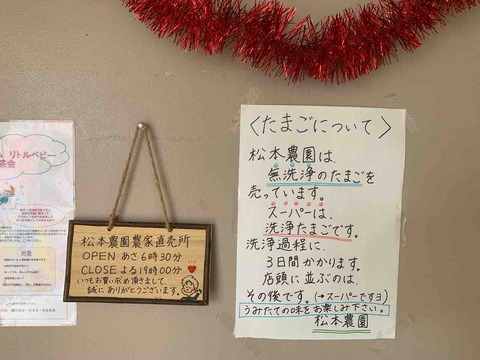 リトルベビー
茶会
対象
松本農園農家直売所
OPEN あさ6時30分
CLOSE よる19時00分
いつもお買い求め頂きまして、
誠にありがとうございます。
〈たまごについて〉
松本農園は、
無洗浄のたまごを
売っています。
スーパーは、
洗浄たまごです。
洗浄過程に、
3日間かかります。
店頭に並ぶのは、
その後です。(→スーパーですヨ)
うみたての味をお楽しみ下さい。
松本農園